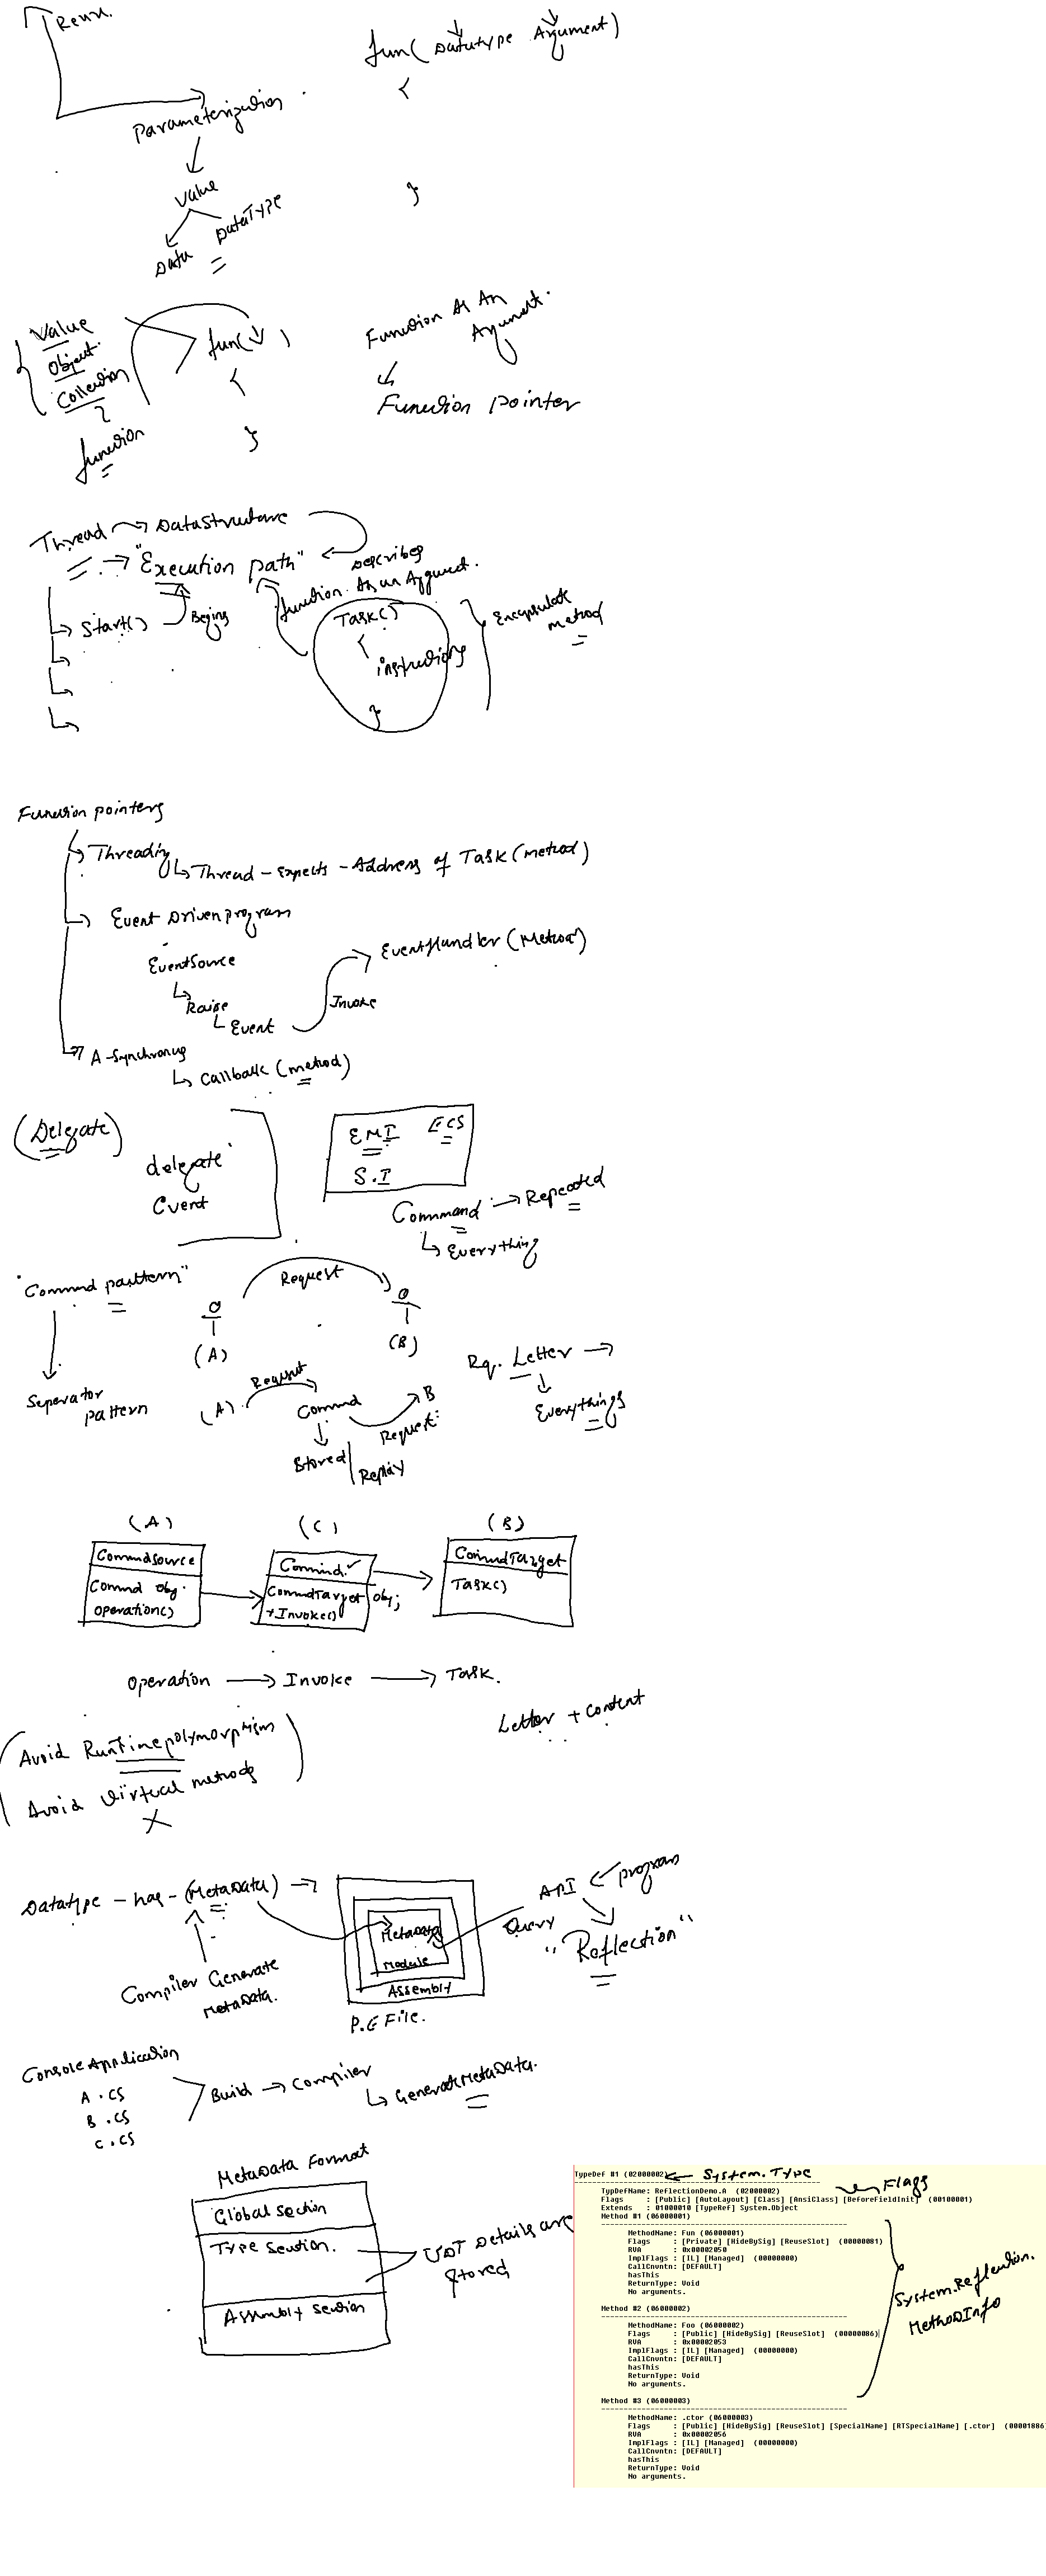 fun( Datatype Argument)
{
Parameterization
}
Value
Data DataType
Value
Object.
Collection
function
fun( )
{
}
Function As An
Argument.
Function pointer
Thread → DataStructure
→ "Execution path"
Describes
function As an Argument.
Start() Begins
Task()
{
instructions
}
Encapsulate
method
Function pointers
Threading
Thread - Expects - Address of Task (method)
Event Driven program
EventSource
Raise
Event
Invoke
EventHandler (Method)
A-synchronus
Callback (method)
(Delegate)
delegate
Event
EMI ECS
S.I
Command → Repeated
Everything
"Commd patttern"
Request
(A)
(B)
Seperator
pattern
(A) Request
Commd
B
Request
Stored Replay
Rq. Letter →
Everythings
(A) (C) (B)
CommdSource
Commd obj.
operation()
Commnd.
CommdTarget obj;
+Invoke()
CommdTarget
Task()
Operation → Invoke → Task.
Letter + content
Avoid RunTimepolymorphism
Avoid Virtual methods
X
Datatype - has - (MetaData) →
Compiler Generate
MetaData.
MetaData
Module
Assembly
P.E File.
API ← program
Query
"Reflection"
ConsoleApplication
A.cs
B.cs
C.cs
Build → Compiler
GenerateMetaData.
MetaData Format
Global section
Type section.
Assembly section
UDT Details are
stored
TypeDef #1 (02000002)
System.Type
TypDefName: ReflectionDemo.A (02000002)
Flags
Flags : [Public] [AutoLayout] [Class] [AnsiClass] [BeforeFieldInit] (00100001)
Extends : 01000010 [TypeRef] System.Object
Method #1 (06000001)
MethodName: Fun (06000001)
Flags : [Private] [HideBySig] [ReuseSlot] (00000081)
RVA : 0x00002050
ImplFlags : [IL] [Managed] (00000000)
CallCnvntn: [DEFAULT]
hasThis
ReturnType: Void
No arguments.
System.Reflection.
MethodInfo
Method #2 (06000002)
MethodName: Foo (06000002)
Flags : [Public] [HideBySig] [ReuseSlot] (00000086)
RVA : 0x00002053
ImplFlags : [IL] [Managed] (00000000)
CallCnvntn: [DEFAULT]
hasThis
ReturnType: Void
No arguments.
Method #3 (06000003)
MethodName: .ctor (06000003)
Flags : [Public] [HideBySig] [ReuseSlot] [SpecialName] [RTSpecialName] [.ctor] (00001886
RVA : 0x00002056
ImplFlags : [IL] [Managed] (00000000)
CallCnvntn: [DEFAULT]
hasThis
ReturnType: Void
No arguments.